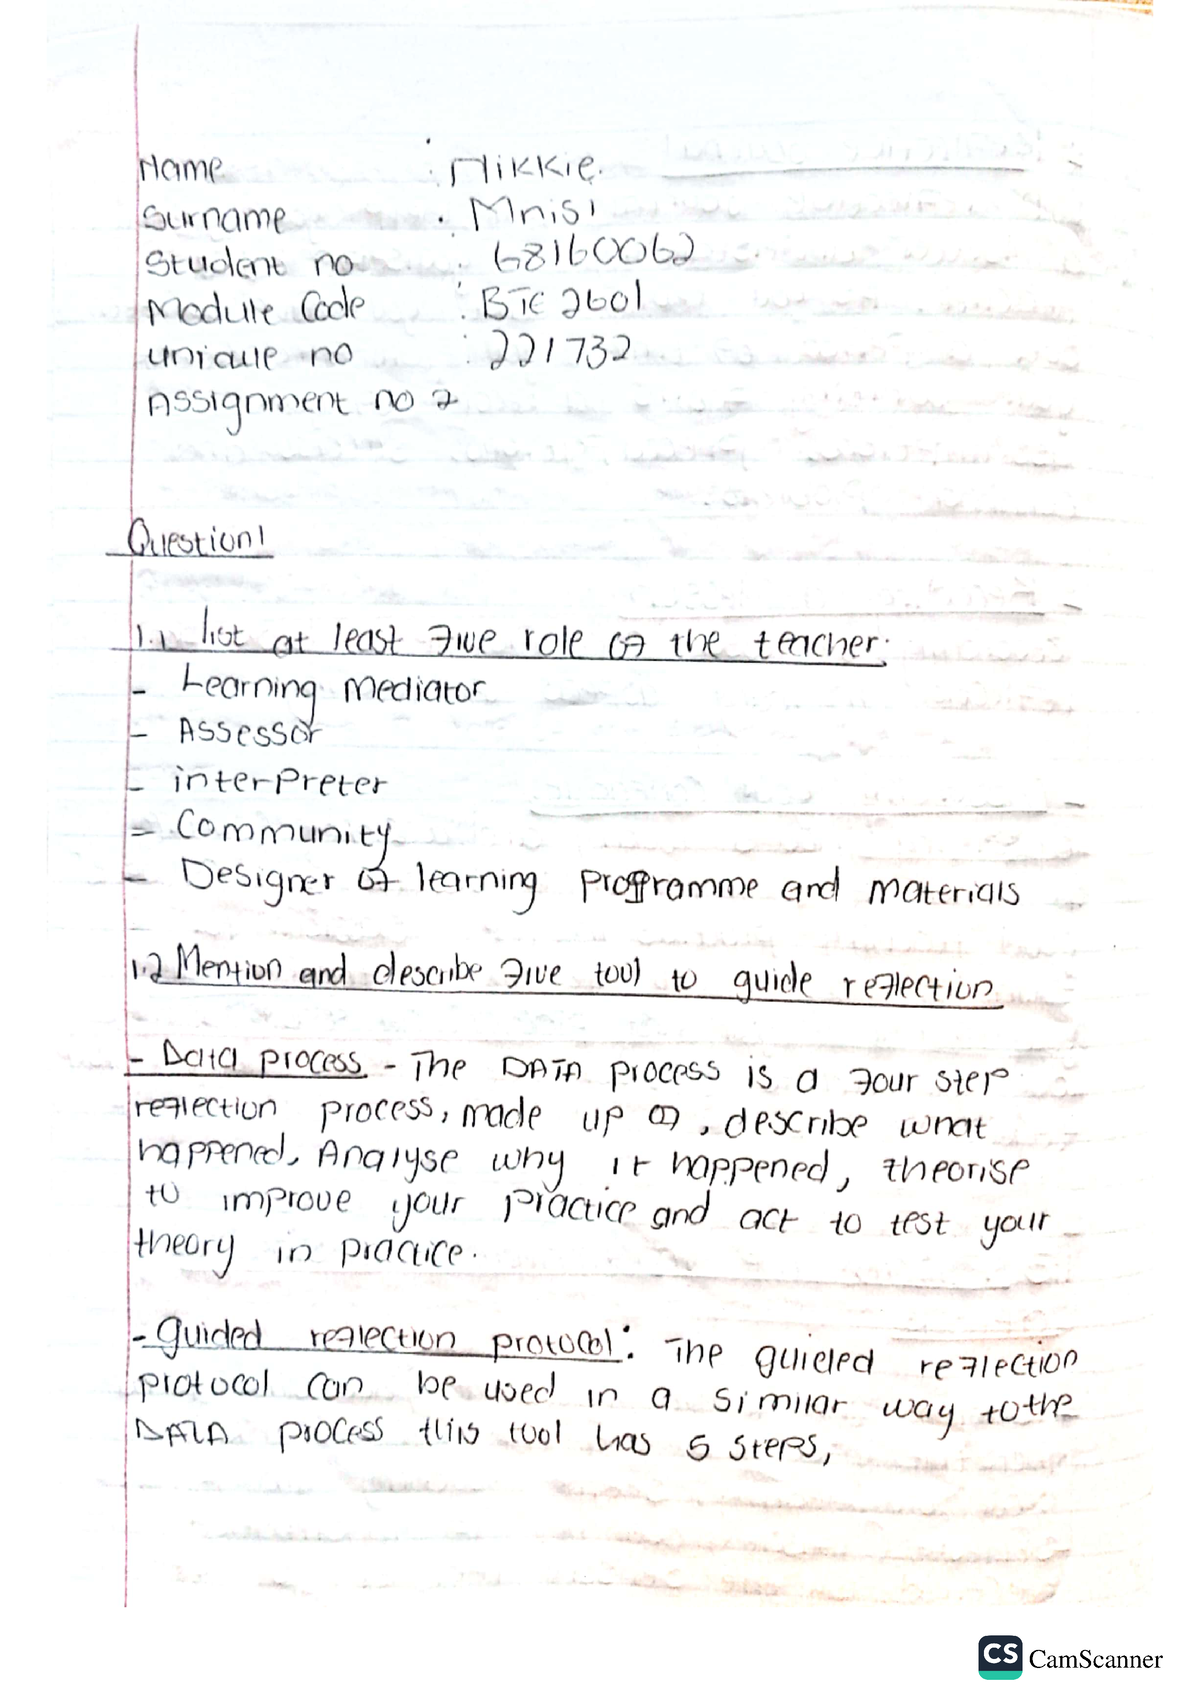 Name : Nikkie.
Surname : Mnisi
Student no : 68160062
Module Code : BTE 2601
unique no : 221732
Assignment no 2
Question 1
1.1 list at least five role of the teacher.
- Learning mediator
- Assessor
- interpreter
- Community
- Designer of learning programme and materials
1.2 Mention and describe five tool to guide reflection
- Data process - The DATA process is a four step
reflection process, made up of, describe what
happened, Analyse why it happened, theorise
to improve your practice and act to test your
theory in practice.
- guided reflection protocol: The guided reflection
protocol can be used in a similar way to the
DATA process this tool has 5 steps,
CS CamScanner